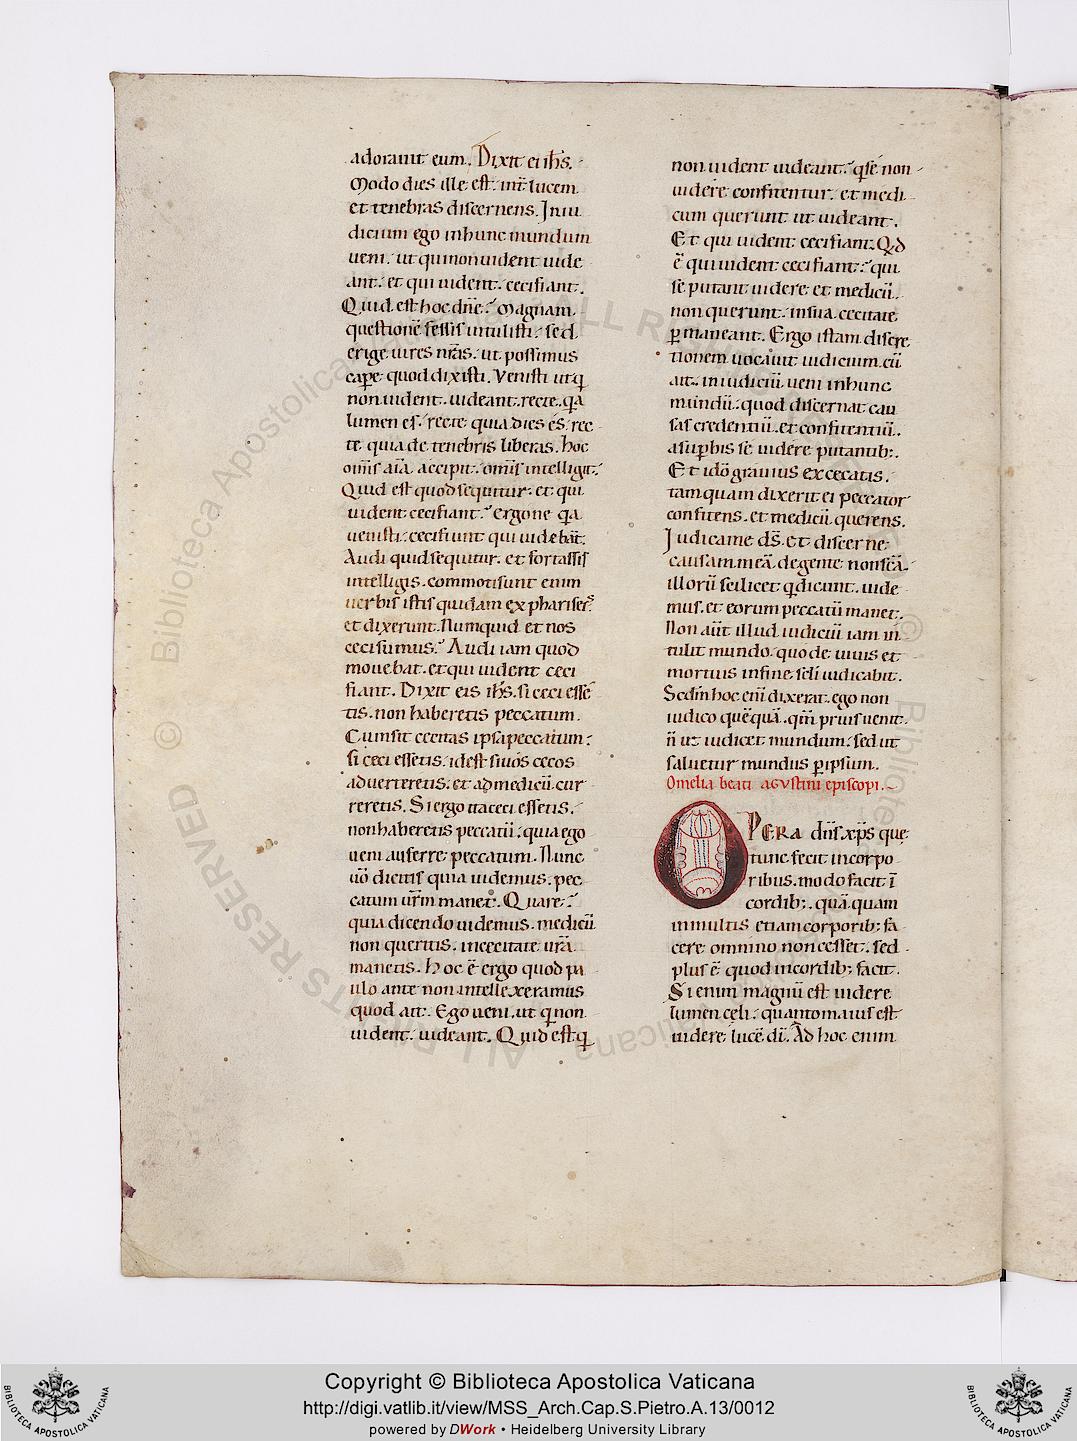 adorauit eum. Dixit ei ih̄s.
Modo dies ille est. int̄ lucem
et tenebras discernens. In iu
dicium ego in hunc mundum
ueni. ut qui non uident uide
ant. et qui uident. ceci fiant.
Quid est hoc dn̄e? Magnam
questionē fessis intulisti. sed
erige uires nr̄as. ut possimus
capē quod dixisti. Venisti ut q̄
non uident. uideant. recte. q̄a
lumen es. recte quia dies es. rec
te. quia de tenebris liberas. hoc
om̄is aīa accipit. om̄is intelligit.
Quid est quod sequitur. et qui
uident ceci fiant? Ergo ne q̄a
uenisti. ceci fiunt qui uidebant̄.
Audi quid sequitur. et fortassis
intelligis. commoti sunt enim
uerbis istis quidam ex pharisęis
et dixerunt. Numquid et nos
ceci sumus? Audi iam quod
mouebat. et qui uident ceci
fiant. Dixit eis ih̄s. si ceci essē
tis. non haberetis peccatum.
Cum sit cecitas ipsa peccatum.
si ceci essetis. id est si uos cecos
aduerteretis. et ad medicū cur
reretis. Si ergo ita ceci essetis.
non haberetis peccatū. quia ego
ueni auferre peccatum. Nunc
uō dicitis quia uidemus. pec
catum ur̄m manet. Quare?
quia dicendo uidemus. medicū
non queritis. in cecitate ur̄a
manetis. Hoc ē ergo quod pa
ulo ante non intellexeramus
quod ait. Ego ueni. ut q̄ non
uident. uideant. Quid est q̄
non uident uideant? q̄ sē non
uidere confitentur. et medi
cum querunt ut uideant.
Et qui uident ceci fiant. Qd̄
ē qui uident ceci fiant? qui
sē putant uidere. et medicū
non querunt. in sua cecitate
p̄maneant. Ergo istam discre
tionem uocauit iudicium. cū
ait. in iudiciū ueni in hunc
mundū. quod discernat cau
sas credentiū. et confitentiū.
a sup̄bis se uidere putantib;.
Et idō grauius excecatis.
tamquam dixerit ei peccator
confitens. et medicū querens.
Iudica me ds̄. et discerne
causam meā. de gente non sc̄a.
illorū scilicet q̄ dicunt. uide
mus. et eorum peccatū manet.
Non aūt illud iudiciū iam in
tulit mundo. quo de uiuis et
mortuis in fine sc̄li iudicabit.
Scdm̄ hoc enī dixerat. ego non
iudico quēquā. qm̄ prius uenit.
n̄ ut iudicet mundum. sed ut
saluetur mundus p̄ ipsum.
Omelia beati agvstini episcopi.
OPERA dn̄s xp̄s quę
tunc fecit in corpo
ribus. modo facit ī
cordib;. quā quam
in multis etiam corporib; fa
cere omnino non cesset. sed
plus ē quod in cordib; facit.
Si enim magnū est uidere
lumen celi. quanto maius est
uidere lucē dī. Ad hoc enim
© Biblioteca Apostolica Vaticana
ALL RIGHTS RESERVED
BIBLIOTECA APOSTOLICA VATICANA
Copyright © Biblioteca Apostolica Vaticana
http://digi.vatlib.it/view/MSS_Arch.Cap.S.Pietro.A.13/0012
powered by DWork • Heidelberg University Library
BIBLIOTECA APOSTOLICA VATICANA